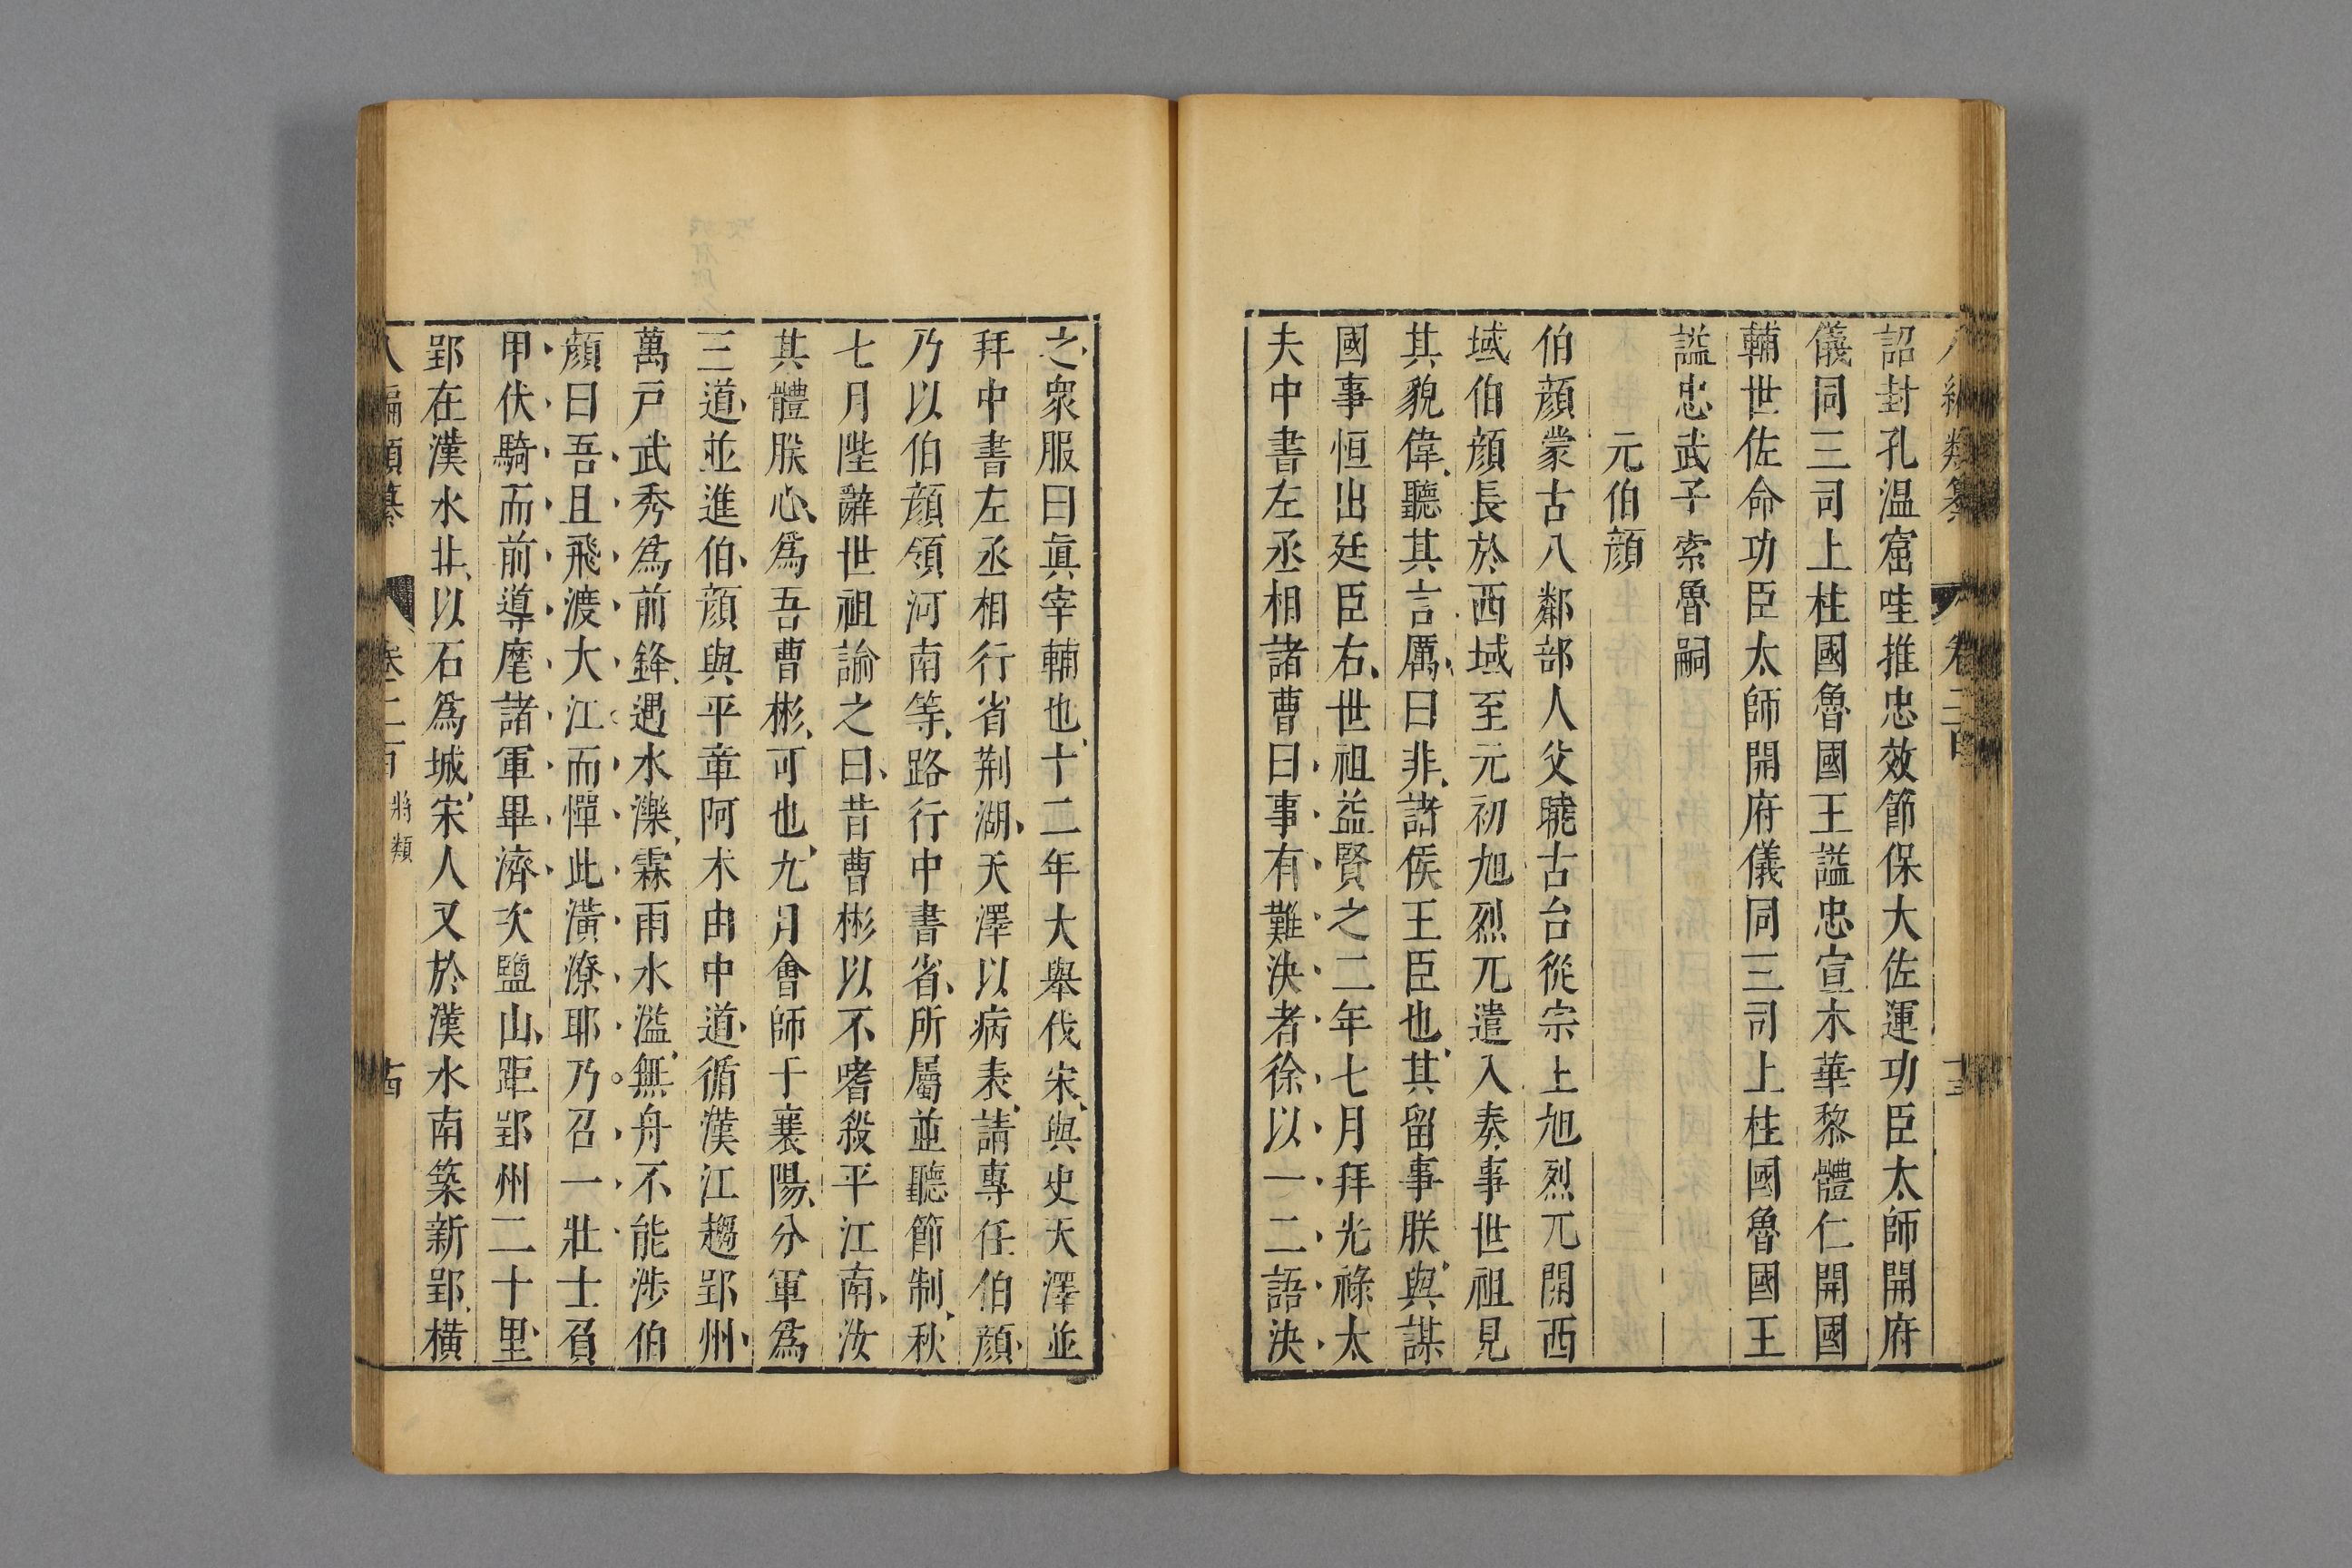 詔封孔温窟哇推忠效節保大佐運功臣太師開府
儀同三司上柱國魯國王謚忠宣木華黎體仁開國
輔世佐命功臣太師開府儀同三司上柱國魯國王
謚忠武子索魯嗣
元伯顔
伯顔蒙古八鄰部人父曉古台從宗上旭烈兀開西
域伯顔長於西域至元初旭烈兀遣入奏事世祖見
其貌偉聽其言厲曰非諸侯王臣也其留事朕與謀
國事恒出廷臣右世祖益賢之二年七月拜光祿太
夫中書左丞相諸曹曰事有難決者徐以一二語決
之衆服曰真宰輔也十二年大舉伐宋與史天澤並
拜中書左丞相行省荆湖天澤以病表請專任伯顔
乃以伯顔領河南等路行中書省所屬並聽節制秋
七月陛辭世祖諭之曰昔曹彬以不嗜殺平江南汝
其體朕心爲吾曹彬可也九月會師于襄陽分軍爲
三道並進伯顔與平章阿术由中道循漢江趨郢州
萬戸武秀爲前鋒遇水濼霖雨水濫無舟不能涉伯
顔曰吾且飛渡大江而憚此潢潦耶乃召一壯士負
甲伏騎而前導麾諸軍畢濟次鹽山距郢州二十里
郢在漢水北以石爲城宋人又於漢水南築新郢横
八編類纂 卷二百 將類 十四